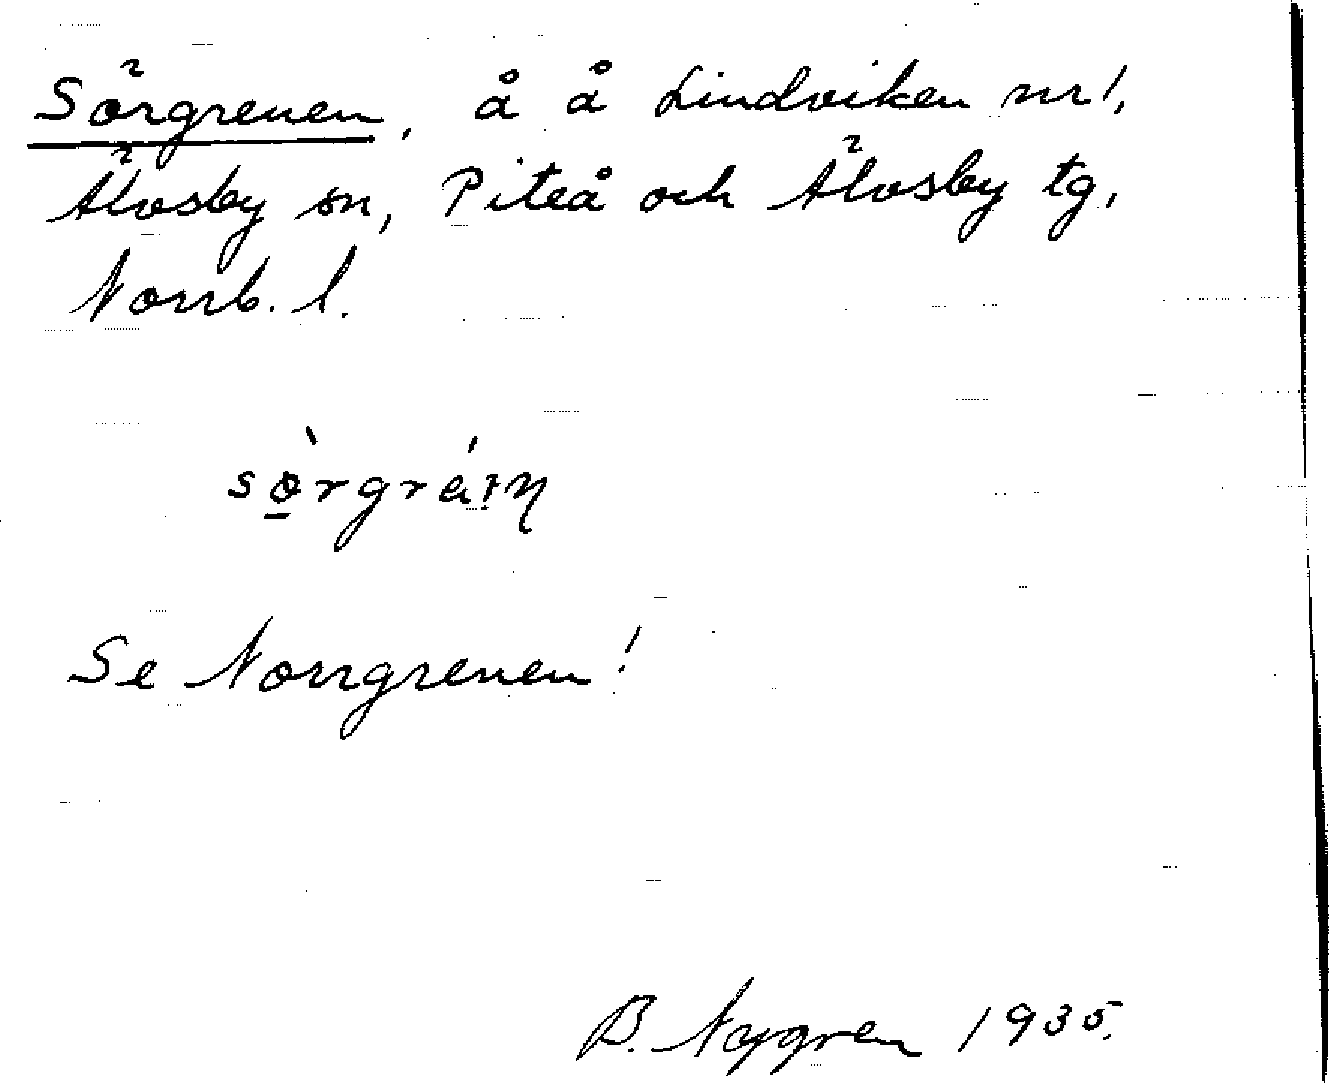 Sörgrenen, å å Lindviken nr 1,
Älvsby sn, Piteå och Älvsby tg,
Norrb. l.
Se Norrgrenen!
B. Nygren 1935.